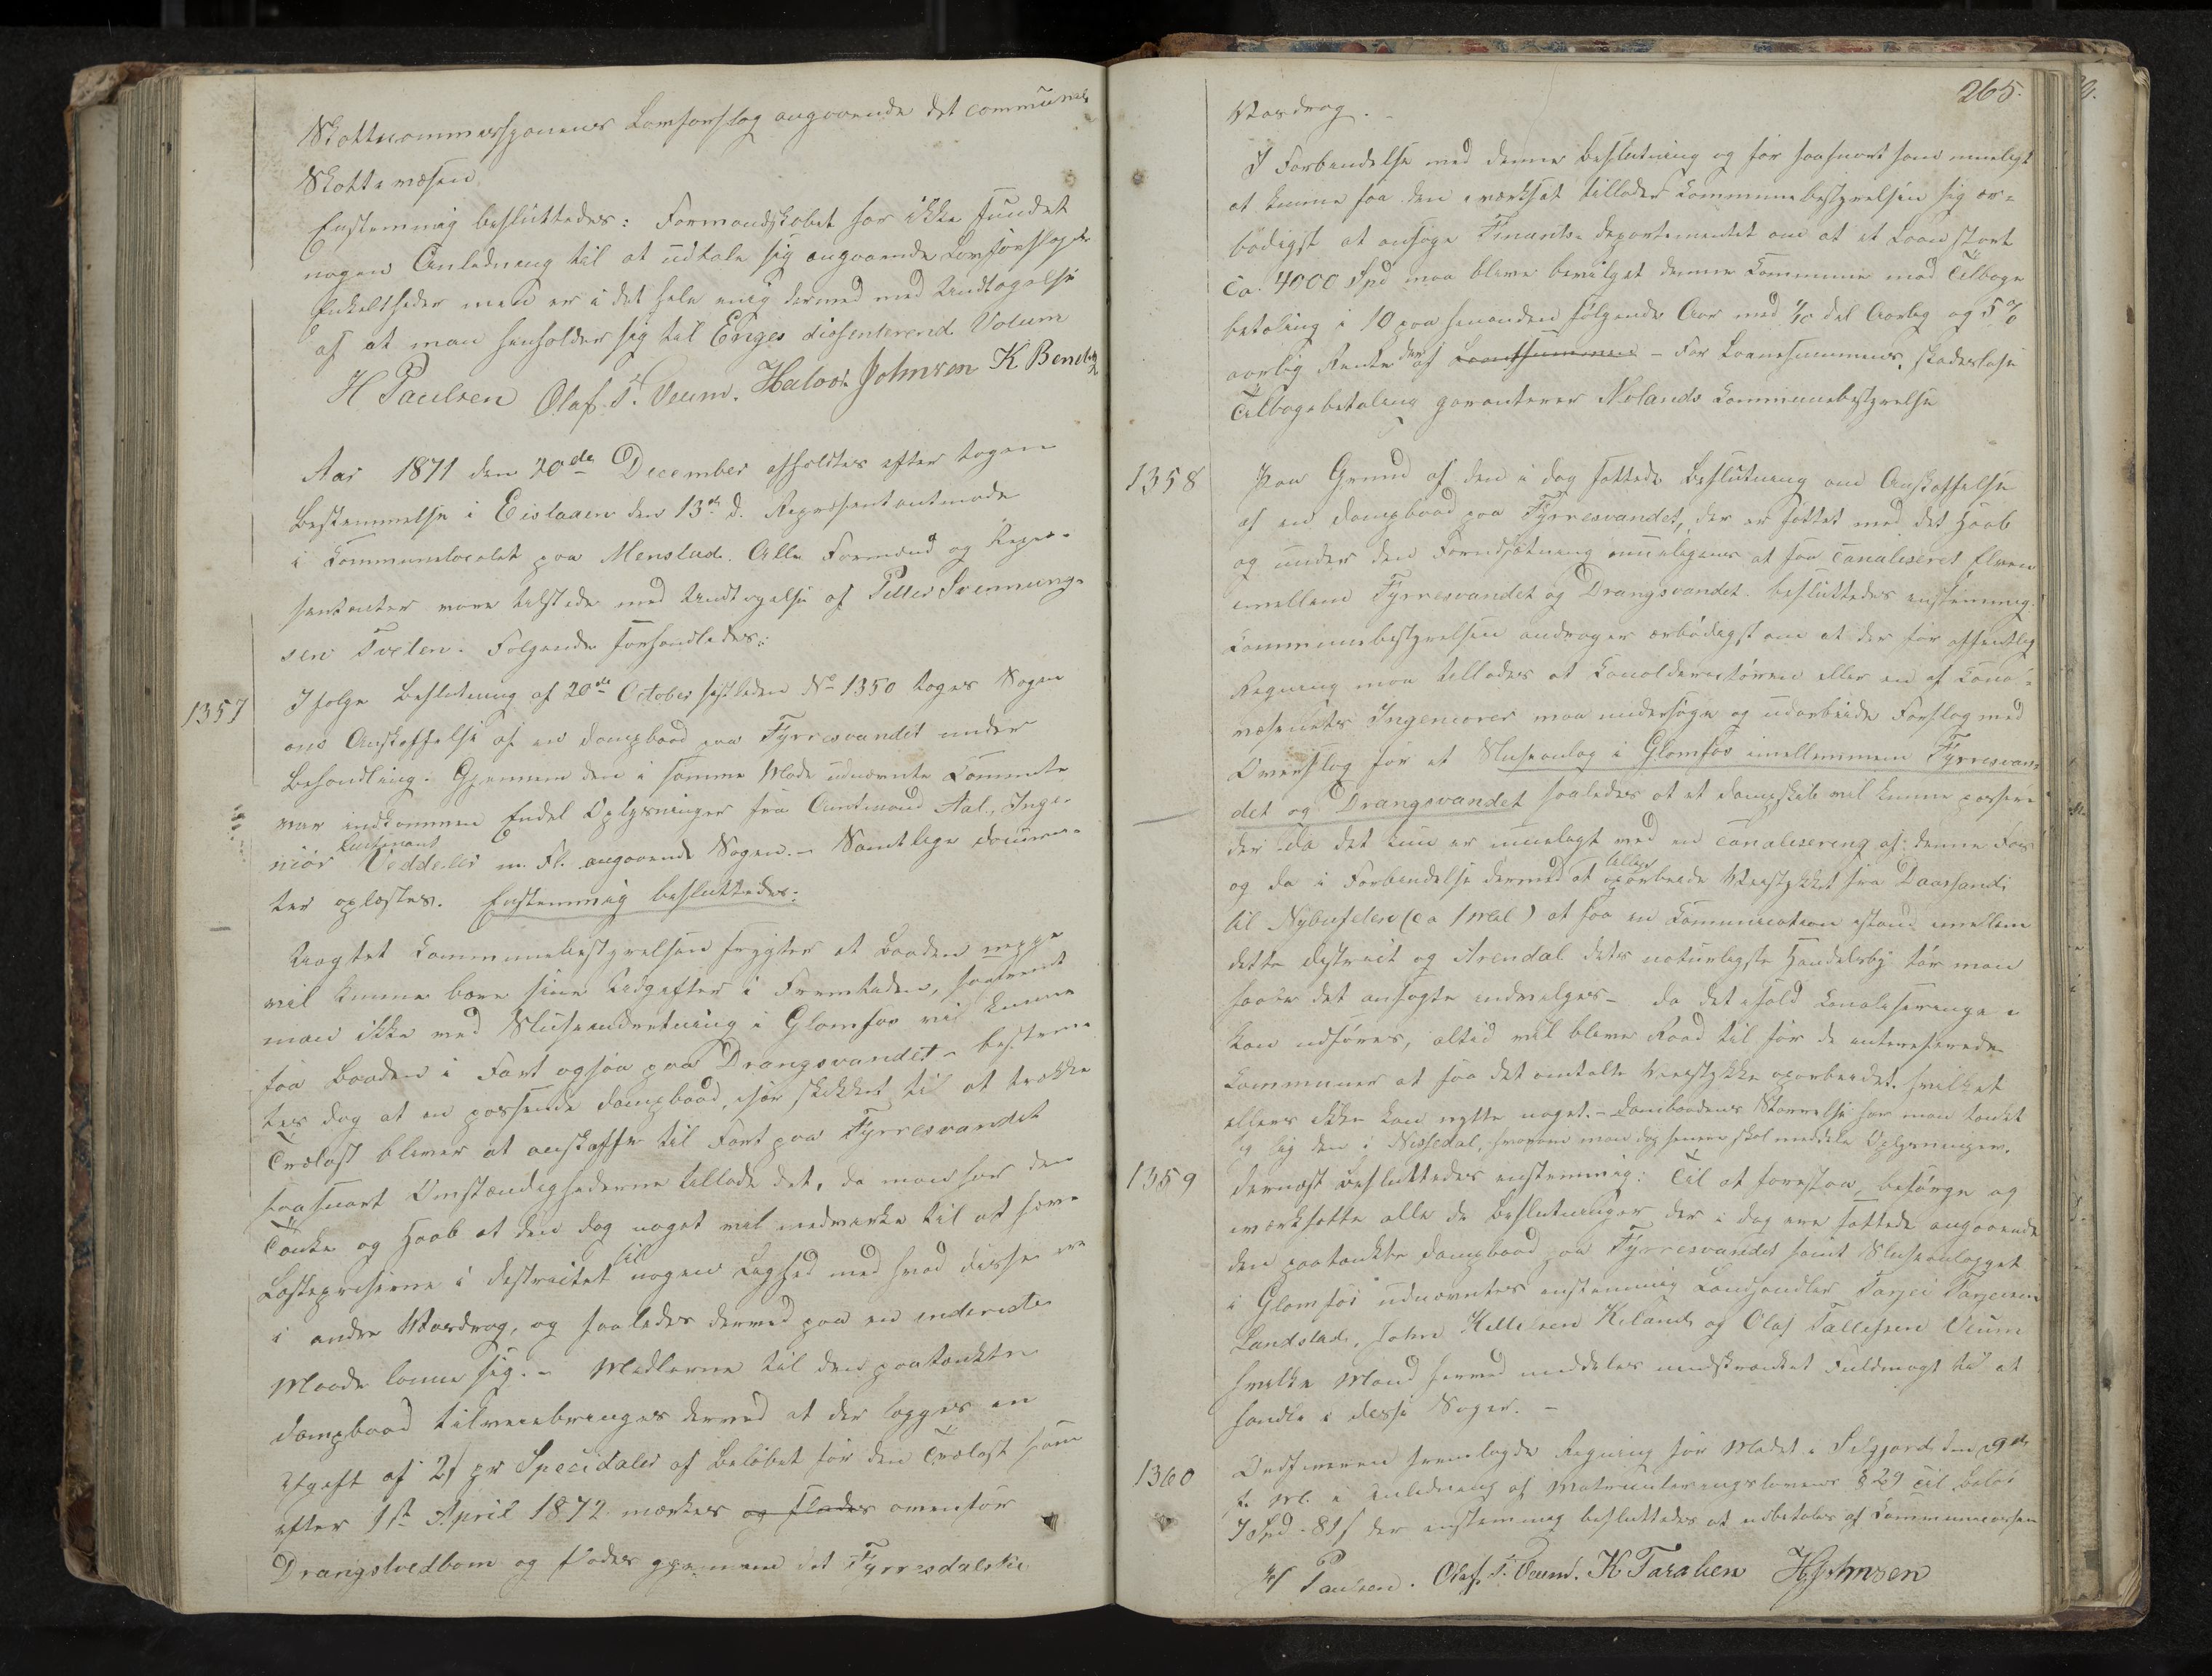 Skattecommissjonens Lovforslag angaaende det communale
Skattevæsen
Enstemmig besluttedes: Formandskabet har ikke fundet
nogen Anledning til at udtale sig angaaende Lovforslagets
Enkeltheder men er i det hele enig dermed med Undtagelse
af at man henholder sig til Eriges disenterende Votum
H Paulsen Olaf T. Veum. Halvor Johnsen K Bendix
Aar 1871 den 20de December afholdtes efter tagen
Bestemmelse i Eislaaen den 13de d. Repræsentantmøde
i Communelocalet paa Menstad. Alle Formænd og Repræ-
sentanter vare tilstede med Undtagelse af Petter Svennung-
sen Tveten. Følgende forhandledes:
1357 Ifølge Beslutning af 20de October sidstleden No 1350 toges Sagen
om Anskaffelse af en Dampbaad paa Fyrresvandet under
Behandling. Gjennem den i samme Møde udnævnte Committe
var indkommen Endel Oplysninger fra Amtmand Aal, Inge-
niør Lieutenant Veddeler m. Fl. angaaende Sagen. - Samtlige Documen-
ter oplæstes. Enstemmig besluttedes:
Uagtet Communebestyrelsen frygter at Baaden neppe
vil kunne bære sine Udgifter i Fremtiden, saafremt
man ikke ved Sluseindretning i Glomfos vil kunne
faa Baaden i Fart ogsaa paa Drangsvandet - bestem-
tes dog at en passende Dampbaad, især skikket til at trække
Trælast bliver at anskaffe til Fart paa Fyrresvandet
saasnart Omstændighederne tillade det, da man har den
Tanke og Haab at den dog noget vil medvirke til at hæve
Lastepriserne i Destrictet til nogen Lighed med hvad disse ere
i andre Vasdrag, og saaledes derved paa en inderecte
Maade lønne sig. - Midlerne til den paatænkte
Dampbaad tilveiebringes derved at der lægges en
Afgift af 2 s pr Speciedaler af Beløbet for den Trælast som
efter 1ste April 1872 mærkes og flødes ovenfor
Drangstvedbom og flødes gjennem det Fyrresdalske
265.
Vasdrag. -
I Forbindelse med denne Beslutning og for saasnart som mueligt
at kunne faa den iværksat tillader Communebestyrelsen sig ær-
bødigst at ansøge Finants-Departementet om at et Laan stort
ca. 4000 Spd maa blive bevilget denne Commune mod Tilbage
betaling i 10 paa hinanden følgende Aar med 1/10 del Aarlig og 5%
aarlig Rente deraf Laansummen - For Laanesummens skadesløse
Tilbagebetaling garanterer Molands Communebestyrelse
1358 Paa Grund af den i dag fattede Beslutning om Anskaffelse
af en Dampbaad paa Fyrresvandet, der er fattet med det Haab
og under den Forudsætning muligens at faa canaliseret Elven
imellem Fyrresvandet og Drangsvandet besluttedes enstemmig:
Communebestyrelsen andrager ærbødigst om at der for offentlig
Regning maa tillades at Canaldirectøren eller en af Canal-
væsenets Ingeniører maa undersøge og udarbeide Forslag med
Overslag for et Sluseanlæg i Glomfos imellemmem Fyrresvan-
det og Drangsvandet saaledes at et Dampskib vil kunne passere
der. Da det kun er mueligt ved en Canalisering af denne Fos
og da i Forbindelse dermed at tillige oparbeide Veistykket fra Daarsand
til Nybufelen (ca 1 Mil) at faa en Communication istand mellem
dette District og Arendal dets naturligste Handelsby tør man
haabe det ansøgte indvilges - da det ifald Canaliseringen
kan udføres, altid vil blive Raad til for de interesserede
Communer at faa det omtalte Veistykke oparbeidet. hvilket
ellers ikke kan nytte noget. - Dambaadens Størrelse har man tænkt
sig lig den i Nissedal, hvorom man dog senere skal meddele Oplysninger.
1359 Dernæst besluttedes enstemmig: Til at forestaa, besørge og
iværksætte alle de Beslutninger der i dag ere fattede angaaende
den paatænkte Dampbaad paa Fyrresvandet samt Sluseanlægget
i Glomfos udnævntes enstemmig Landhandler Tarjei Tarjeisen
Landstad, John Kittelsen Kiland og Olaf Tallefsen Veum
hvilke Mænd herved meddeles uindskrænket Fuldmagt til at
handle i disse Sager. -
1360 Ordføreren fremlagde Regning for Mødet i Silgjord den 9de
f. M. i Anledning af Matrikuleringslovens § 29 til Beløb
7 Spd - 81 s der enstemmig besluttedes at udbetales af Communecassen
H Paulsen. Olaf. T. Veum. K Taraldsen HJohnsen